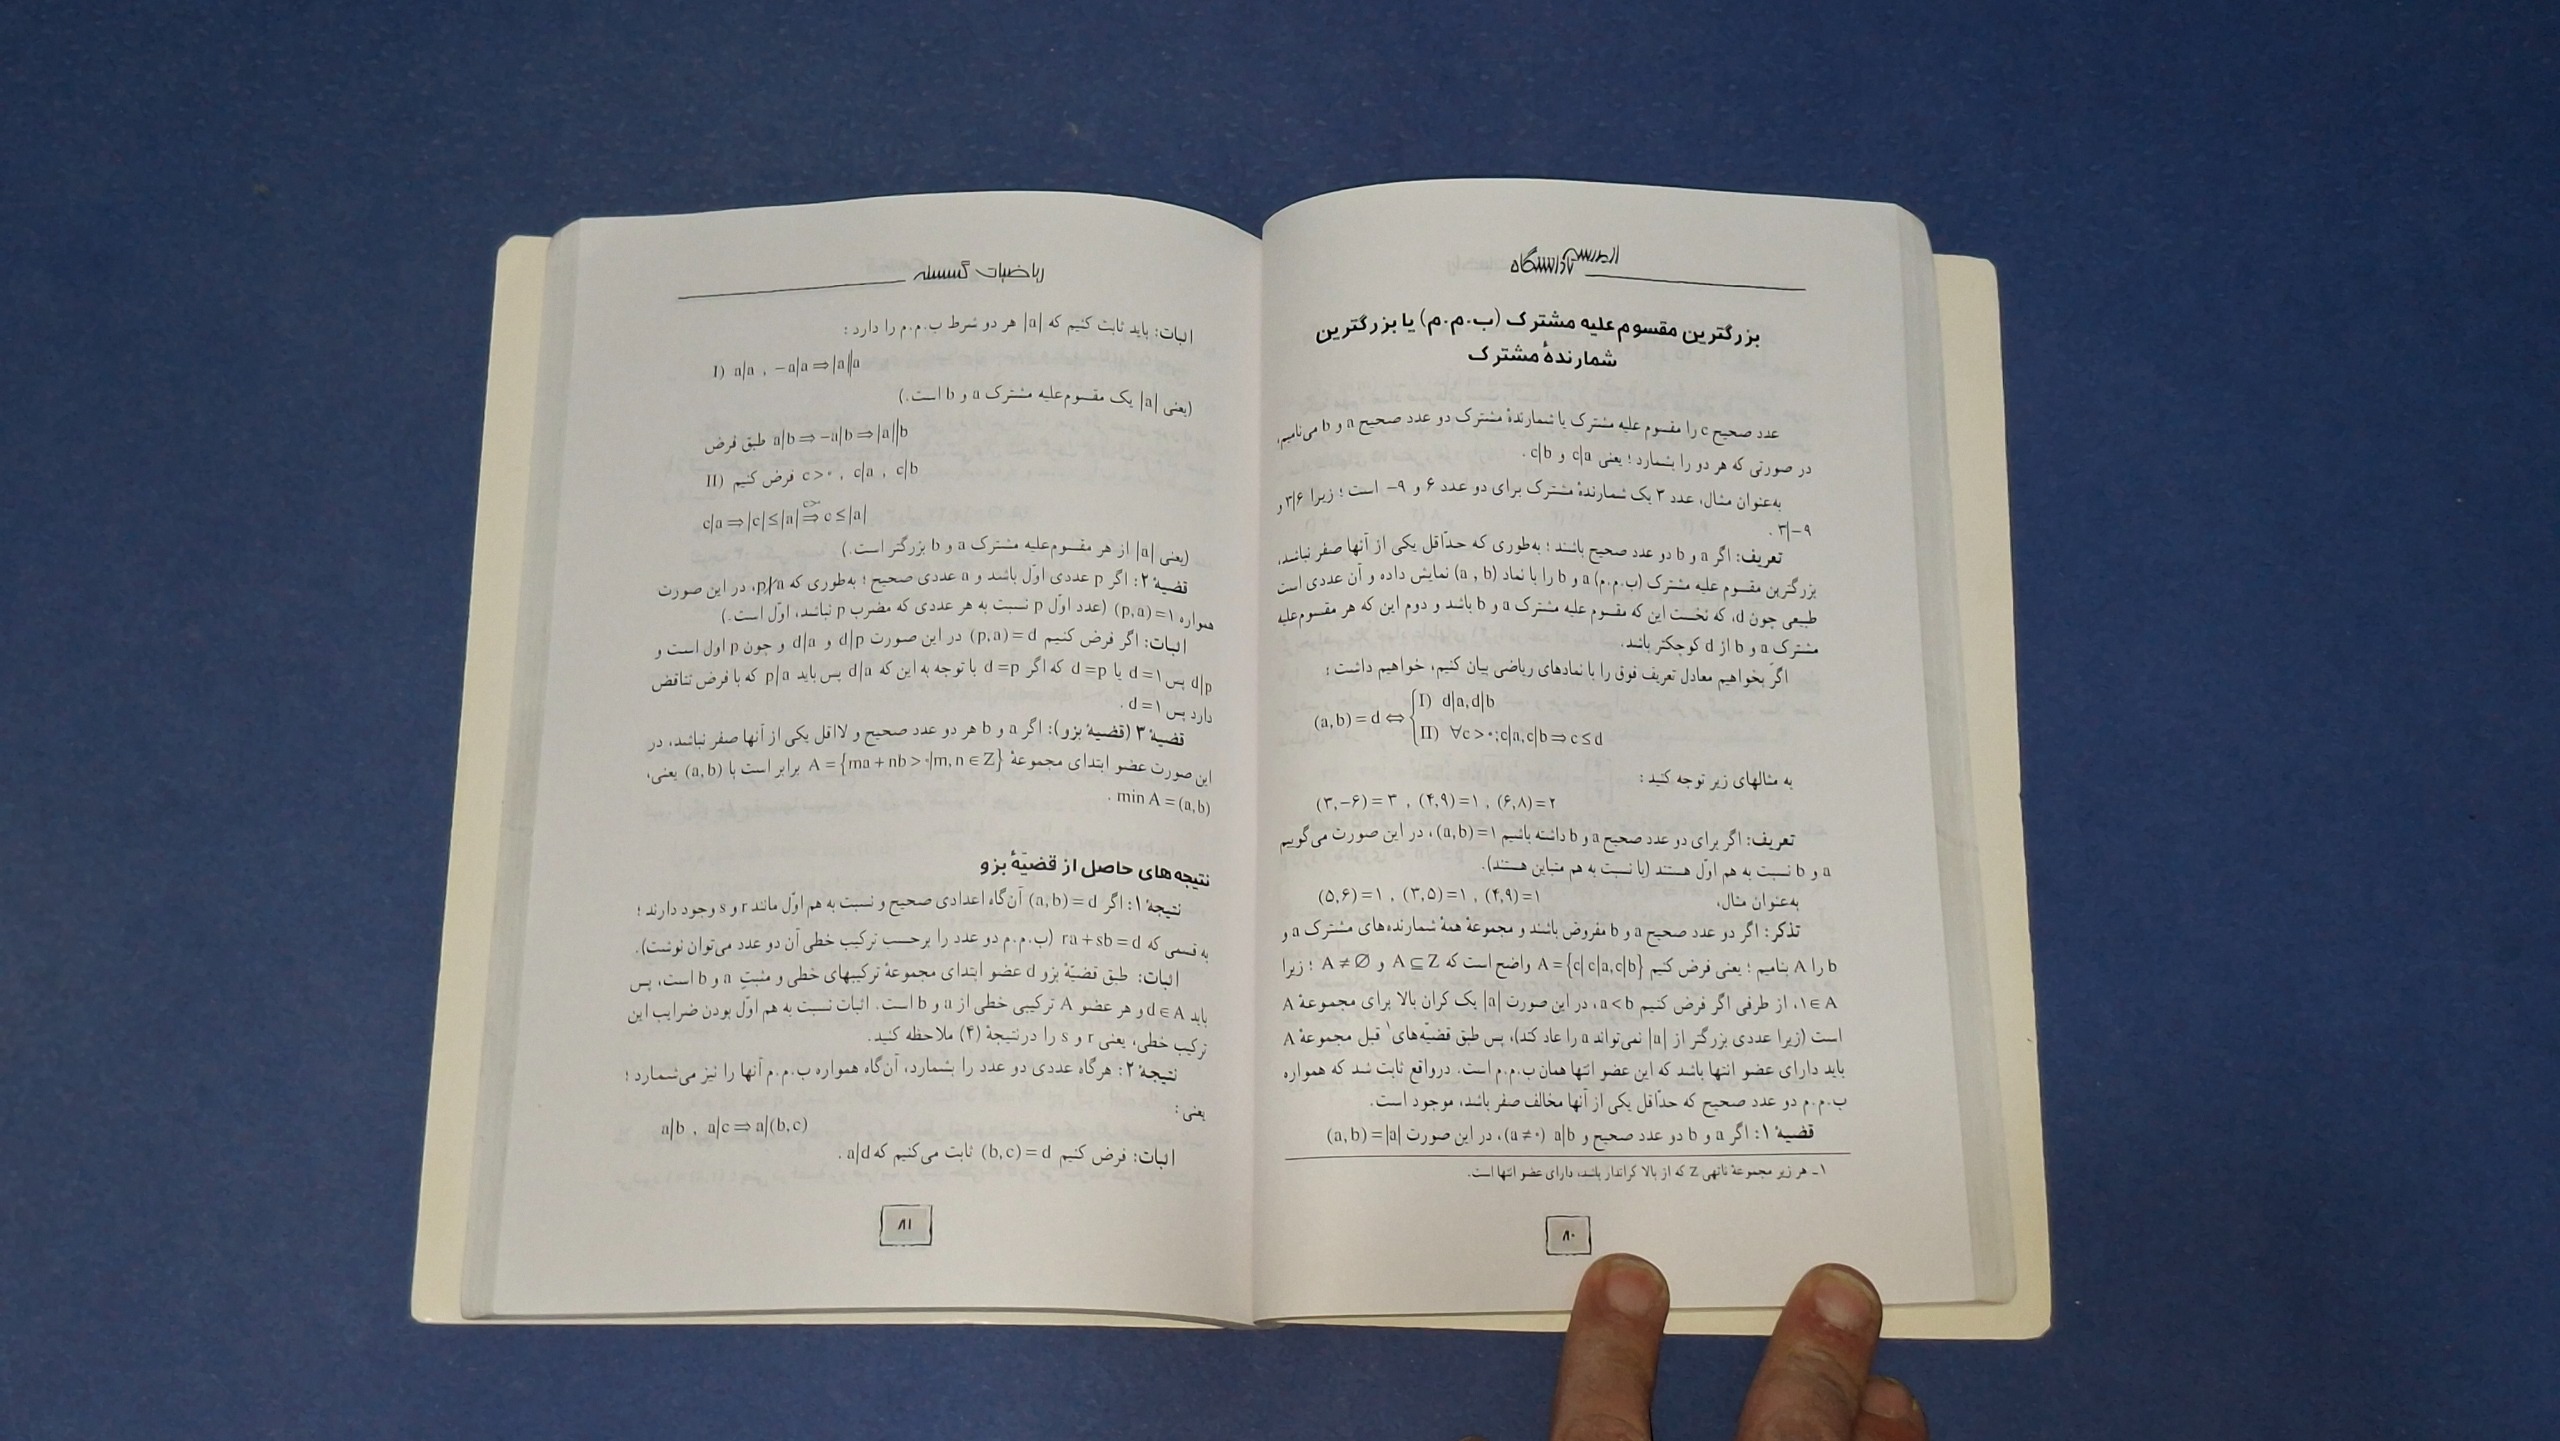 از مدرسه تا دانشگاه
بزرگترین مقسوم‌علیه مشترک (ب.م.م) یا بزرگترین
شمارندهٔ مشترک
عدد صحیح c را مقسوم علیه مشترک یا شمارندهٔ مشترک دو عدد صحیح a و b می‌نامیم،
در صورتی که هر دو را بشمارد ؛ یعنی c|a و c|b .
به‌عنوان مثال، عدد ۳ یک شمارندهٔ مشترک برای دو عدد ۶ و ۹− است ؛ زیرا ۳|۶ و
۳|−۹ .
تعریف: اگر a و b دو عدد صحیح باشند ؛ به‌طوری که حدّاقل یکی از آنها صفر نباشد،
بزرگترین مقسوم علیه مشترک (ب.م.م) a و b را با نماد (a , b) نمایش داده و آن عددی است
طبیعی چون d، که نخست این که مقسوم علیه مشترک a و b باشد و دوم این که هر مقسوم‌علیه
مشترک a و b از d کوچکتر باشد.
اگر بخواهیم معادل تعریف فوق را با نمادهای ریاضی بیان کنیم، خواهیم داشت :
(a,b) = d ⇔ { I) d|a,d|b
II) ∀c > ۰;c|a,c|b ⇒ c ≤ d
به مثالهای زیر توجه کنید :
(۳,−۶) = ۳ , (۴,۹) = ۱ , (۶,۸) = ۲
تعریف: اگر برای دو عدد صحیح a و b داشته باشیم (a,b) = ۱ ، در این صورت می‌گوییم
a و b نسبت به هم اوّل هستند (یا نسبت به هم متباین هستند).
به‌عنوان مثال، (۵,۶) = ۱ , (۳,۵) = ۱ , (۴,۹) = ۱
تذکر: اگر دو عدد صحیح a و b مفروض باشند و مجموعهٔ همهٔ شمارنده‌های مشترک a و
b را A بنامیم ؛ یعنی فرض کنیم A = {c| c|a,c|b} واضح است که A ⊆ Z و A ≠ ∅ ؛ زیرا
۱ ∈ A، از طرفی اگر فرض کنیم a < b، در این صورت |a| یک کران بالا برای مجموعهٔ A
است (زیرا عددی بزرگتر از |a| نمی‌تواند a را عاد کند)، پس طبق قضیّه‌های۱ قبل مجموعهٔ A
باید دارای عضو انتها باشد که این عضو انتها همان ب.م.م است. درواقع ثابت شد که همواره
ب.م.م دو عدد صحیح که حدّاقل یکی از آنها مخالف صفر باشد، موجود است.
قضیهٔ ۱: اگر a و b دو عدد صحیح و a|b (a ≠ ۰)، در این صورت (a,b) = |a|
۱ـ هر زیر مجموعهٔ ناتهی Z که از بالا کراندار باشد، دارای عضو انتها است.
۸۰
ریاضیات گسسته
اثبات: باید ثابت کنیم که |a| هر دو شرط ب.م.م را دارد :
I) a|a , −a|a ⇒ |a||a
(یعنی |a| یک مقسوم‌علیه مشترک a و b است.)
طبق فرض a|b ⇒ −a|b ⇒ |a||b
II) فرض کنیم c > ۰ , c|a , c|b
c|a ⇒ |c| ≤ |a| c>۰⇒ c ≤ |a|
(یعنی |a| از هر مقسوم‌علیه مشترک a و b بزرگتر است.)
قضیهٔ ۲: اگر p عددی اوّل باشد و a عددی صحیح ؛ به‌طوری که p∤a، در این صورت
همواره (p,a) = ۱ (عدد اوّل p نسبت به هر عددی که مضرب p نباشد، اوّل است.)
اثبات: اگر فرض کنیم (p,a) = d در این صورت d|p و d|a و چون p اول است و
d|p پس d = ۱ یا d = p که اگر d = p با توجه به این که d|a پس باید p|a که با فرض تناقض
دارد پس d = ۱ .
قضیهٔ ۳ (قضیهٔ بزو): اگر a و b هر دو عدد صحیح و لااقل یکی از آنها صفر نباشد، در
این صورت عضو ابتدای مجموعهٔ A = {ma + nb > ۰|m,n ∈ Z} برابر است با (a,b) یعنی،
min A = (a,b) .
نتیجه‌های حاصل از قضیّهٔ بزو
نتیجهٔ ۱: اگر (a,b) = d آن‌گاه اعدادی صحیح و نسبت به هم اوّل مانند r و s وجود دارند ؛
به قسمی که ra + sb = d (ب.م.م دو عدد را برحسب ترکیب خطی آن دو عدد می‌توان نوشت).
اثبات: طبق قضیّهٔ بزو d عضو ابتدای مجموعهٔ ترکیبهای خطی و مثبتِ a و b است، پس
باید d ∈ A و هر عضو A ترکیبی خطی از a و b است. اثبات نسبت به هم اوّل بودن ضرایب این
ترکیب خطی، یعنی r و s را در نتیجهٔ (۴) ملاحظه کنید.
نتیجهٔ ۲: هرگاه عددی دو عدد را بشمارد، آن‌گاه همواره ب.م.م آنها را نیز می‌شمارد ؛
یعنی :
a|b , a|c ⇒ a|(b,c)
اثبات: فرض کنیم (b,c) = d ثابت می‌کنیم که a|d .
۸۱